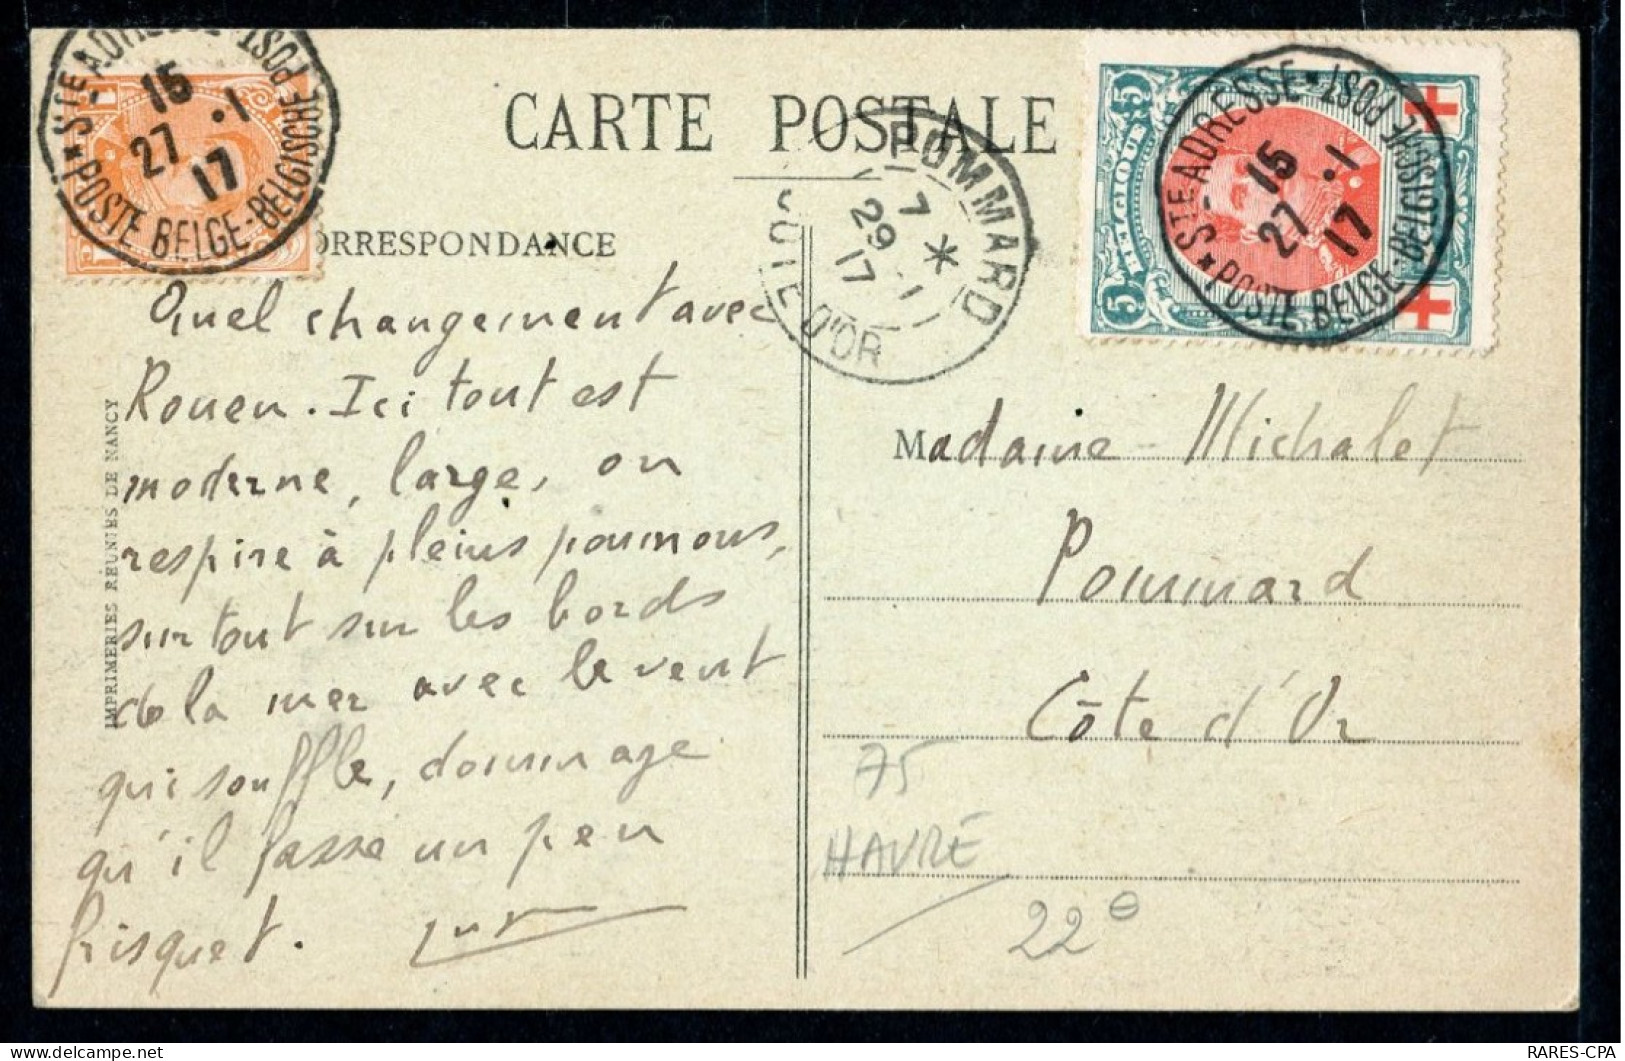 CARTE POSTALE
STE-ADRESSE * POST
15
27 .1
17
* POSTE BELGE-BELGISCHE
POMMARD
7 *
29 .1
17
CÔTE D'OR
STE-ADRESSE * POST
15
27 .1
17
* POSTE BELGE-BELGISCHE
5 5
BELGIQUE
5
ORRESPONDANCE
Quel changement avec
Rouen. Ici tout est
moderne, large, on
respire à pleins poumons,
surtout sur les bords
de la mer avec le vent
qui souffle, dommage
qu'il fasse un peu
frisquet.
IMPRIMERIES REUNIES DE NANCY
Madame Michalet
Pommard
Côte d'Or
75
HAVRE
22e
RARES-CPA